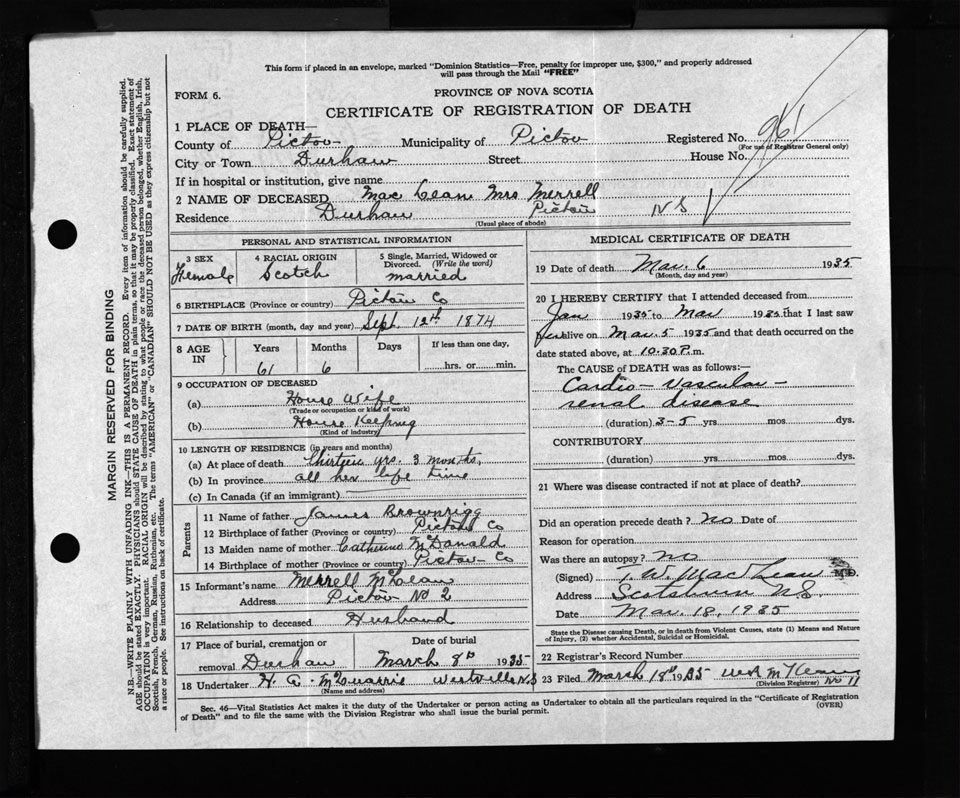 This form if placed in an envelope, marked "Dominion Statistics—Free, penalty for improper use, $300," and properly addressed
will pass through the Mail "FREE"
FORM 6.
PROVINCE OF NOVA SCOTIA
CERTIFICATE OF REGISTRATION OF DEATH
1 PLACE OF DEATH—
County of Pictou Municipality of Pictou Registered No. 961
(For use of Registrar General only)
City or Town Durham Street House No.
If in hospital or institution, give name
2 NAME OF DECEASED MacLean Mrs Merrell
Residence Durham Pictou N S
(Usual place of abode)
PERSONAL AND STATISTICAL INFORMATION
3 SEX Female
4 RACIAL ORIGIN Scotch
5 Single, Married, Widowed or Divorced. (Write the word) married
6 BIRTHPLACE (Province or country) Pictou Co
7 DATE OF BIRTH (month, day and year) Sept. 12th 1874
8 AGE IN Years Months Days If less than one day,
61 6 hrs. or min.
9 OCCUPATION OF DECEASED
(a) House Wife
(Trade or occupation or kind of work)
(b) House Keeping
(Kind of industry)
10 LENGTH OF RESIDENCE (in years and months)
(a) At place of death Thirteen yrs. 3 months,
(b) In province all her life time
(c) In Canada (if an immigrant)
Parents
11 Name of father James Brownrigg
12 Birthplace of father (Province or country) Pictou Co
13 Maiden name of mother Catherine McDonald
14 Birthplace of mother (Province or country) Pictou Co
15 Informant's name Merrell McLean
Address Pictou No 2
16 Relationship to deceased Husband
17 Place of burial, cremation or removal Durham
Date of burial March 8th 1935
18 Undertaker H. A. McQuarrie Westville N.S
(Name and address)
MEDICAL CERTIFICATE OF DEATH
19 Date of death Mar. 6 1935
(Month, day and year)
20 I HEREBY CERTIFY that I attended deceased from
Jan 1935 to Mar 1935 that I last saw
her alive on Mar. 5 1935 and that death occurred on
date stated above, at 10.30 P.m.
The CAUSE of DEATH was as follows:—
Cardio-vascular-
renal disease
(duration) 3-5 yrs. mos. dys.
CONTRIBUTORY
(duration) yrs. mos. dys.
21 Where was disease contracted if not at place of death?
Did an operation precede death? no Date of
Reason for operation
Was there an autopsy? no
(Signed) T. W. MacLean M.D.
Address Scotsburn N.S.
Date Mar. 18, 1935
State the Disease causing Death, or in death from Violent Causes, state (1) Means and Nature
of Injury, (2) whether Accidental, Suicidal or Homicidal.
22 Registrar's Record Number
23 Filed March 18th 1935 McLean
(Division Registrar) No 11
Sec. 46—Vital Statistics Act makes it the duty of the Undertaker or person acting as Undertaker to obtain all the particulars required in the "Certificate of Registration
of Death" and to file the same with the Division Registrar who shall issue the burial permit.
(OVER)
MARGIN RESERVED FOR BINDING
N.B.—WRITE PLAINLY WITH UNFADING INK—THIS IS A PERMANENT RECORD. Every item of information should be carefully supplied.
AGE should be stated EXACTLY. PHYSICIANS should STATE CAUSE OF DEATH in plain terms, so that it may be properly classified. Exact statement of
OCCUPATION is very important. RACIAL ORIGIN will be described by stating to what people or race the deceased person belonged, whether English, Irish,
Scottish, French, German, Russian, Ruthenian, etc. The terms "AMERICAN" or "CANADIAN" SHOULD NOT BE USED as they express citizenship but not
a race or people. See instructions on back of certificate.